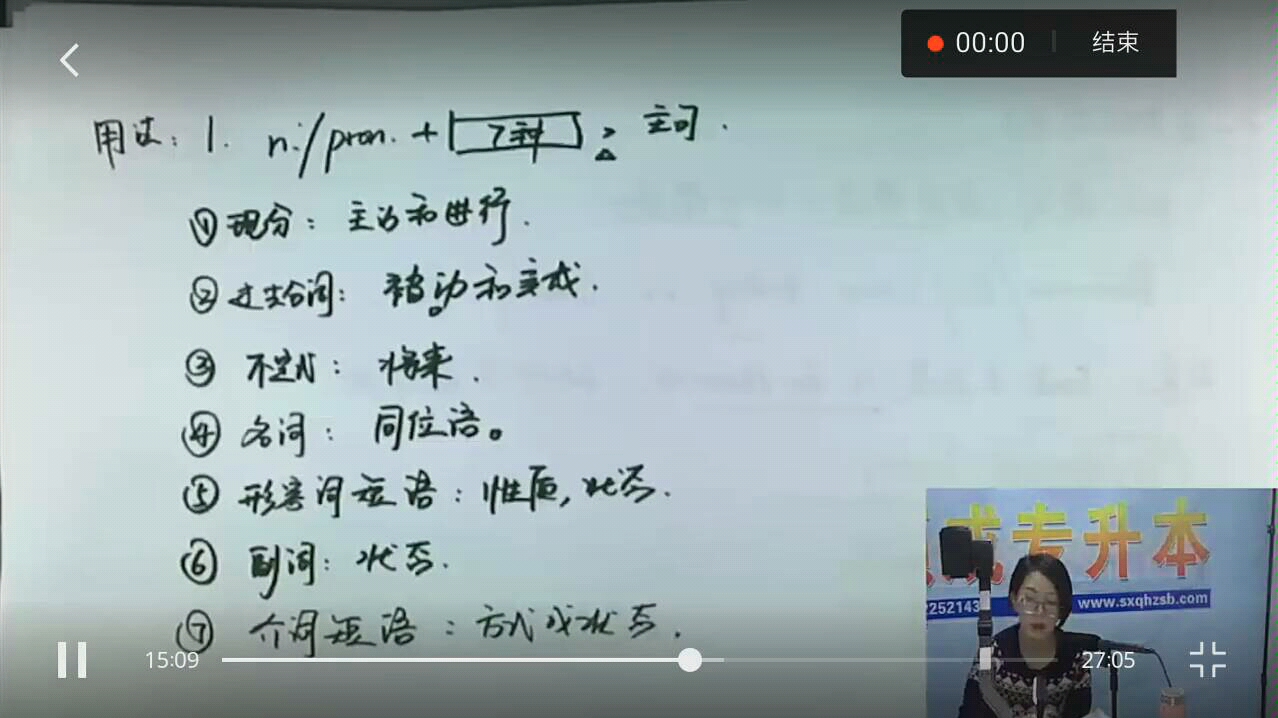 00:00 结束
用法: 1. n./pron. + 7种 , 主句.
① 现分: 主动和进行.
② 过去分词: 被动和完成.
③ 不定式: 将来.
④ 名词: 同位语。
⑤ 形容词短语: 性质, 状态.
⑥ 副词: 状态.
⑦ 介词短语: 方式或状态.
成专升本
2252143
www.sxqhzsb.com
15:09 27:05